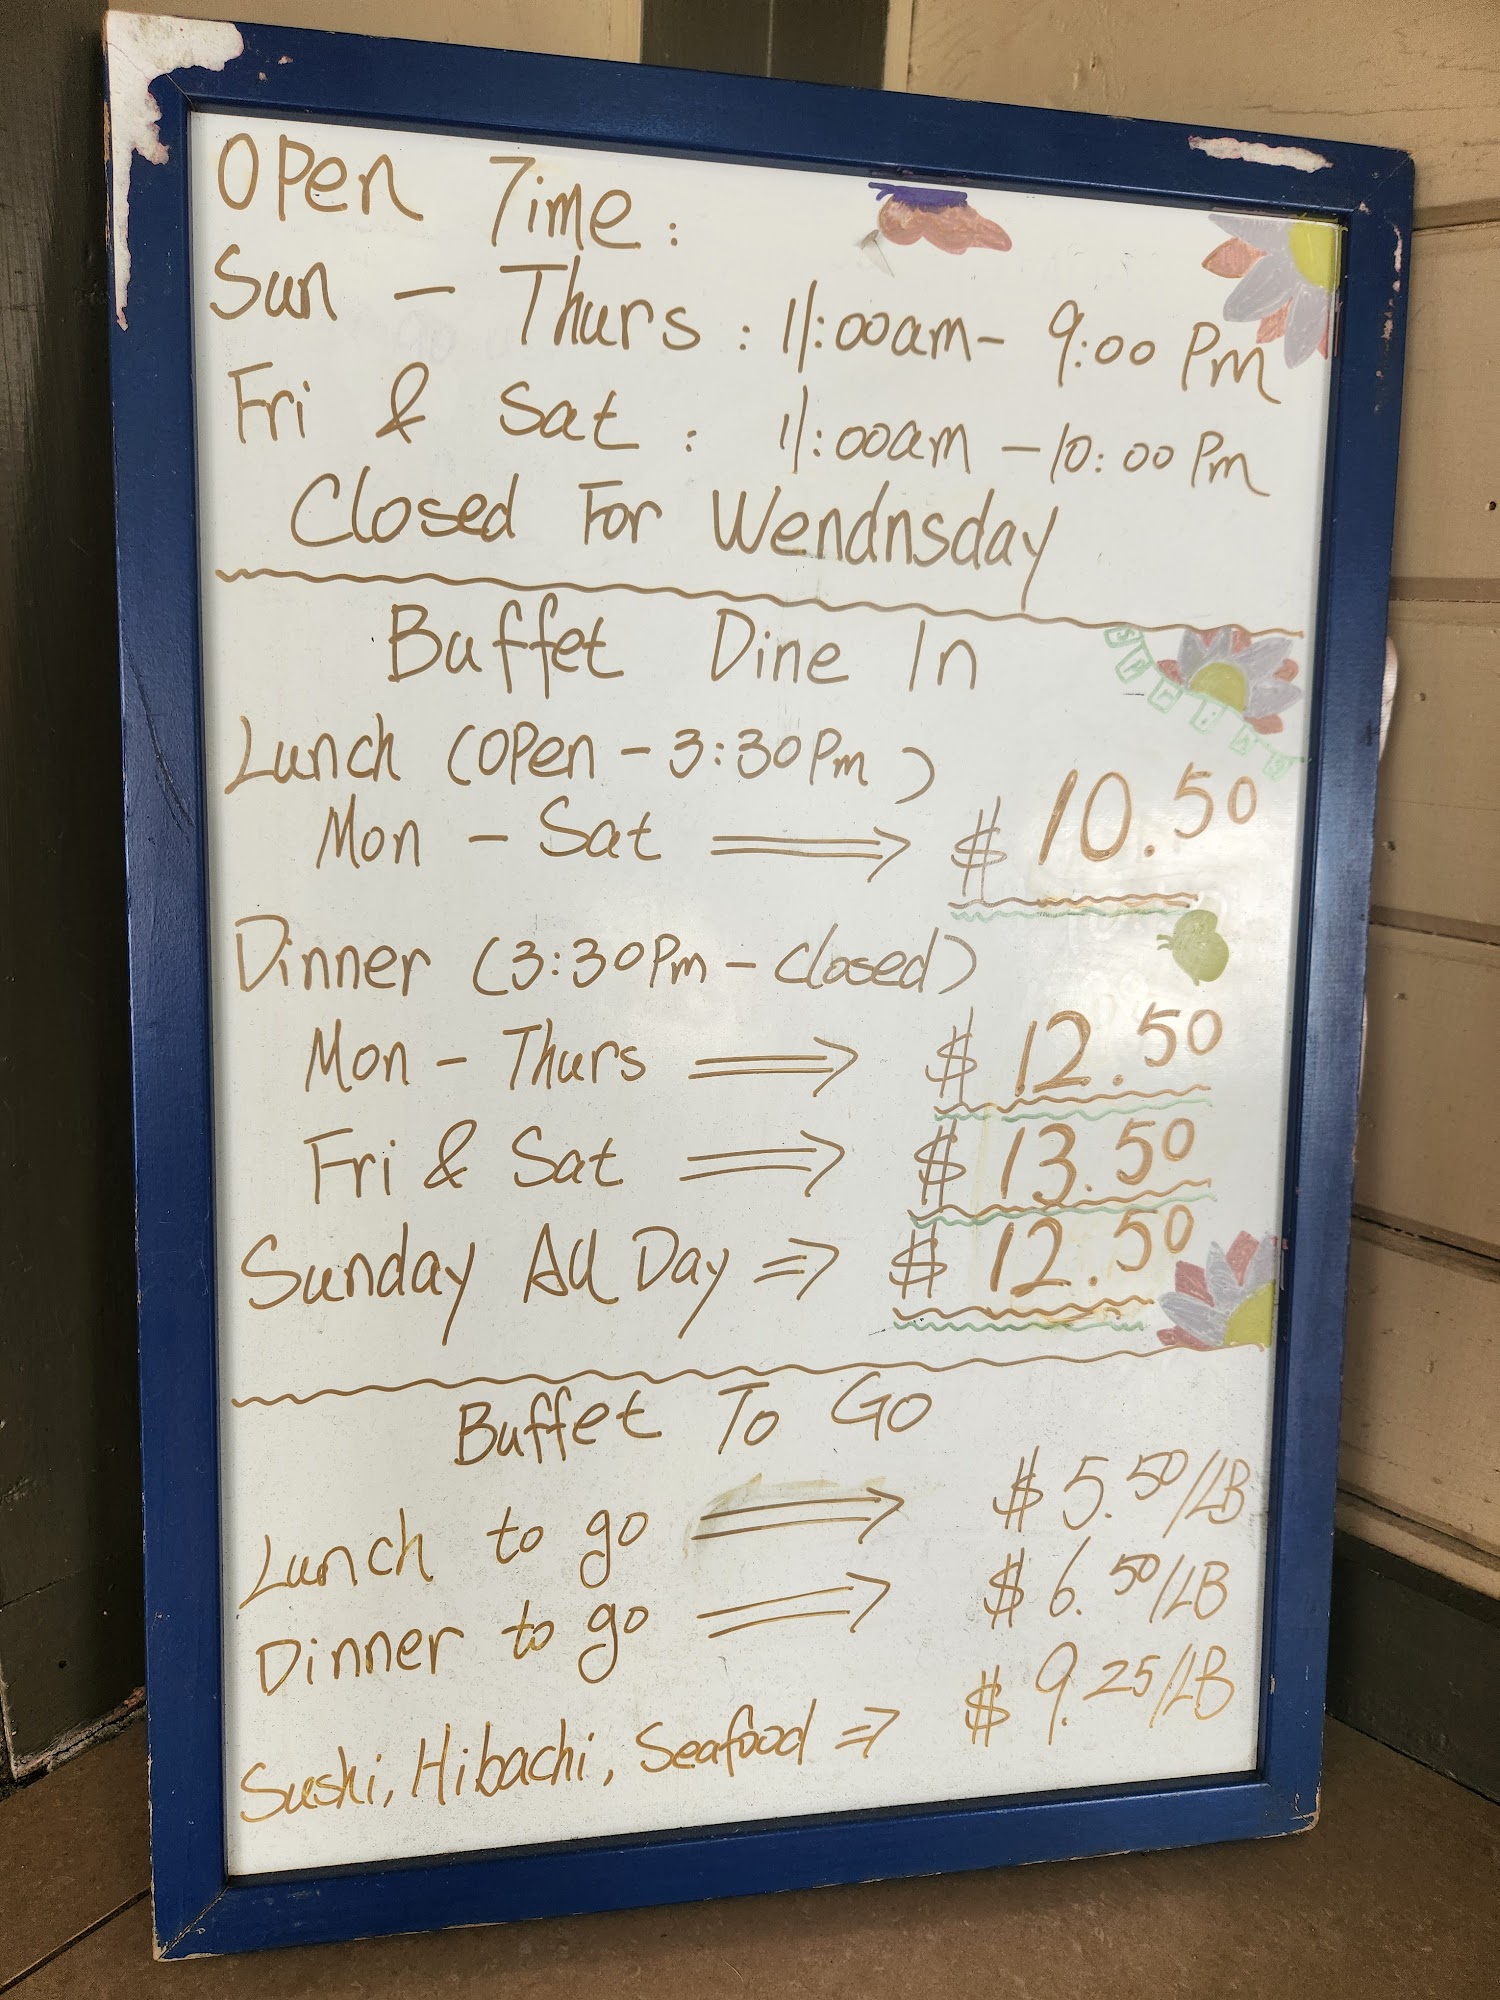 Open Time:
Sun - Thurs: 11:00am - 9:00 Pm
Fri & Sat: 11:00am - 10:00 Pm
Closed For Wendnsday
Buffet Dine In
Lunch (open - 3:30Pm)
Mon - Sat ⇒ $ 10.50
Dinner (3:30Pm - Closed)
Mon - Thurs ⇒ $ 12.50
Fri & Sat ⇒ $ 13.50
Sunday All Day ⇒ $ 12.50
Buffet To Go
Lunch to go ⇒ $ 5.50/LB
Dinner to go ⇒ $ 6.50/LB
Sushi, Hibachi, Seafood ⇒ $ 9.25/LB